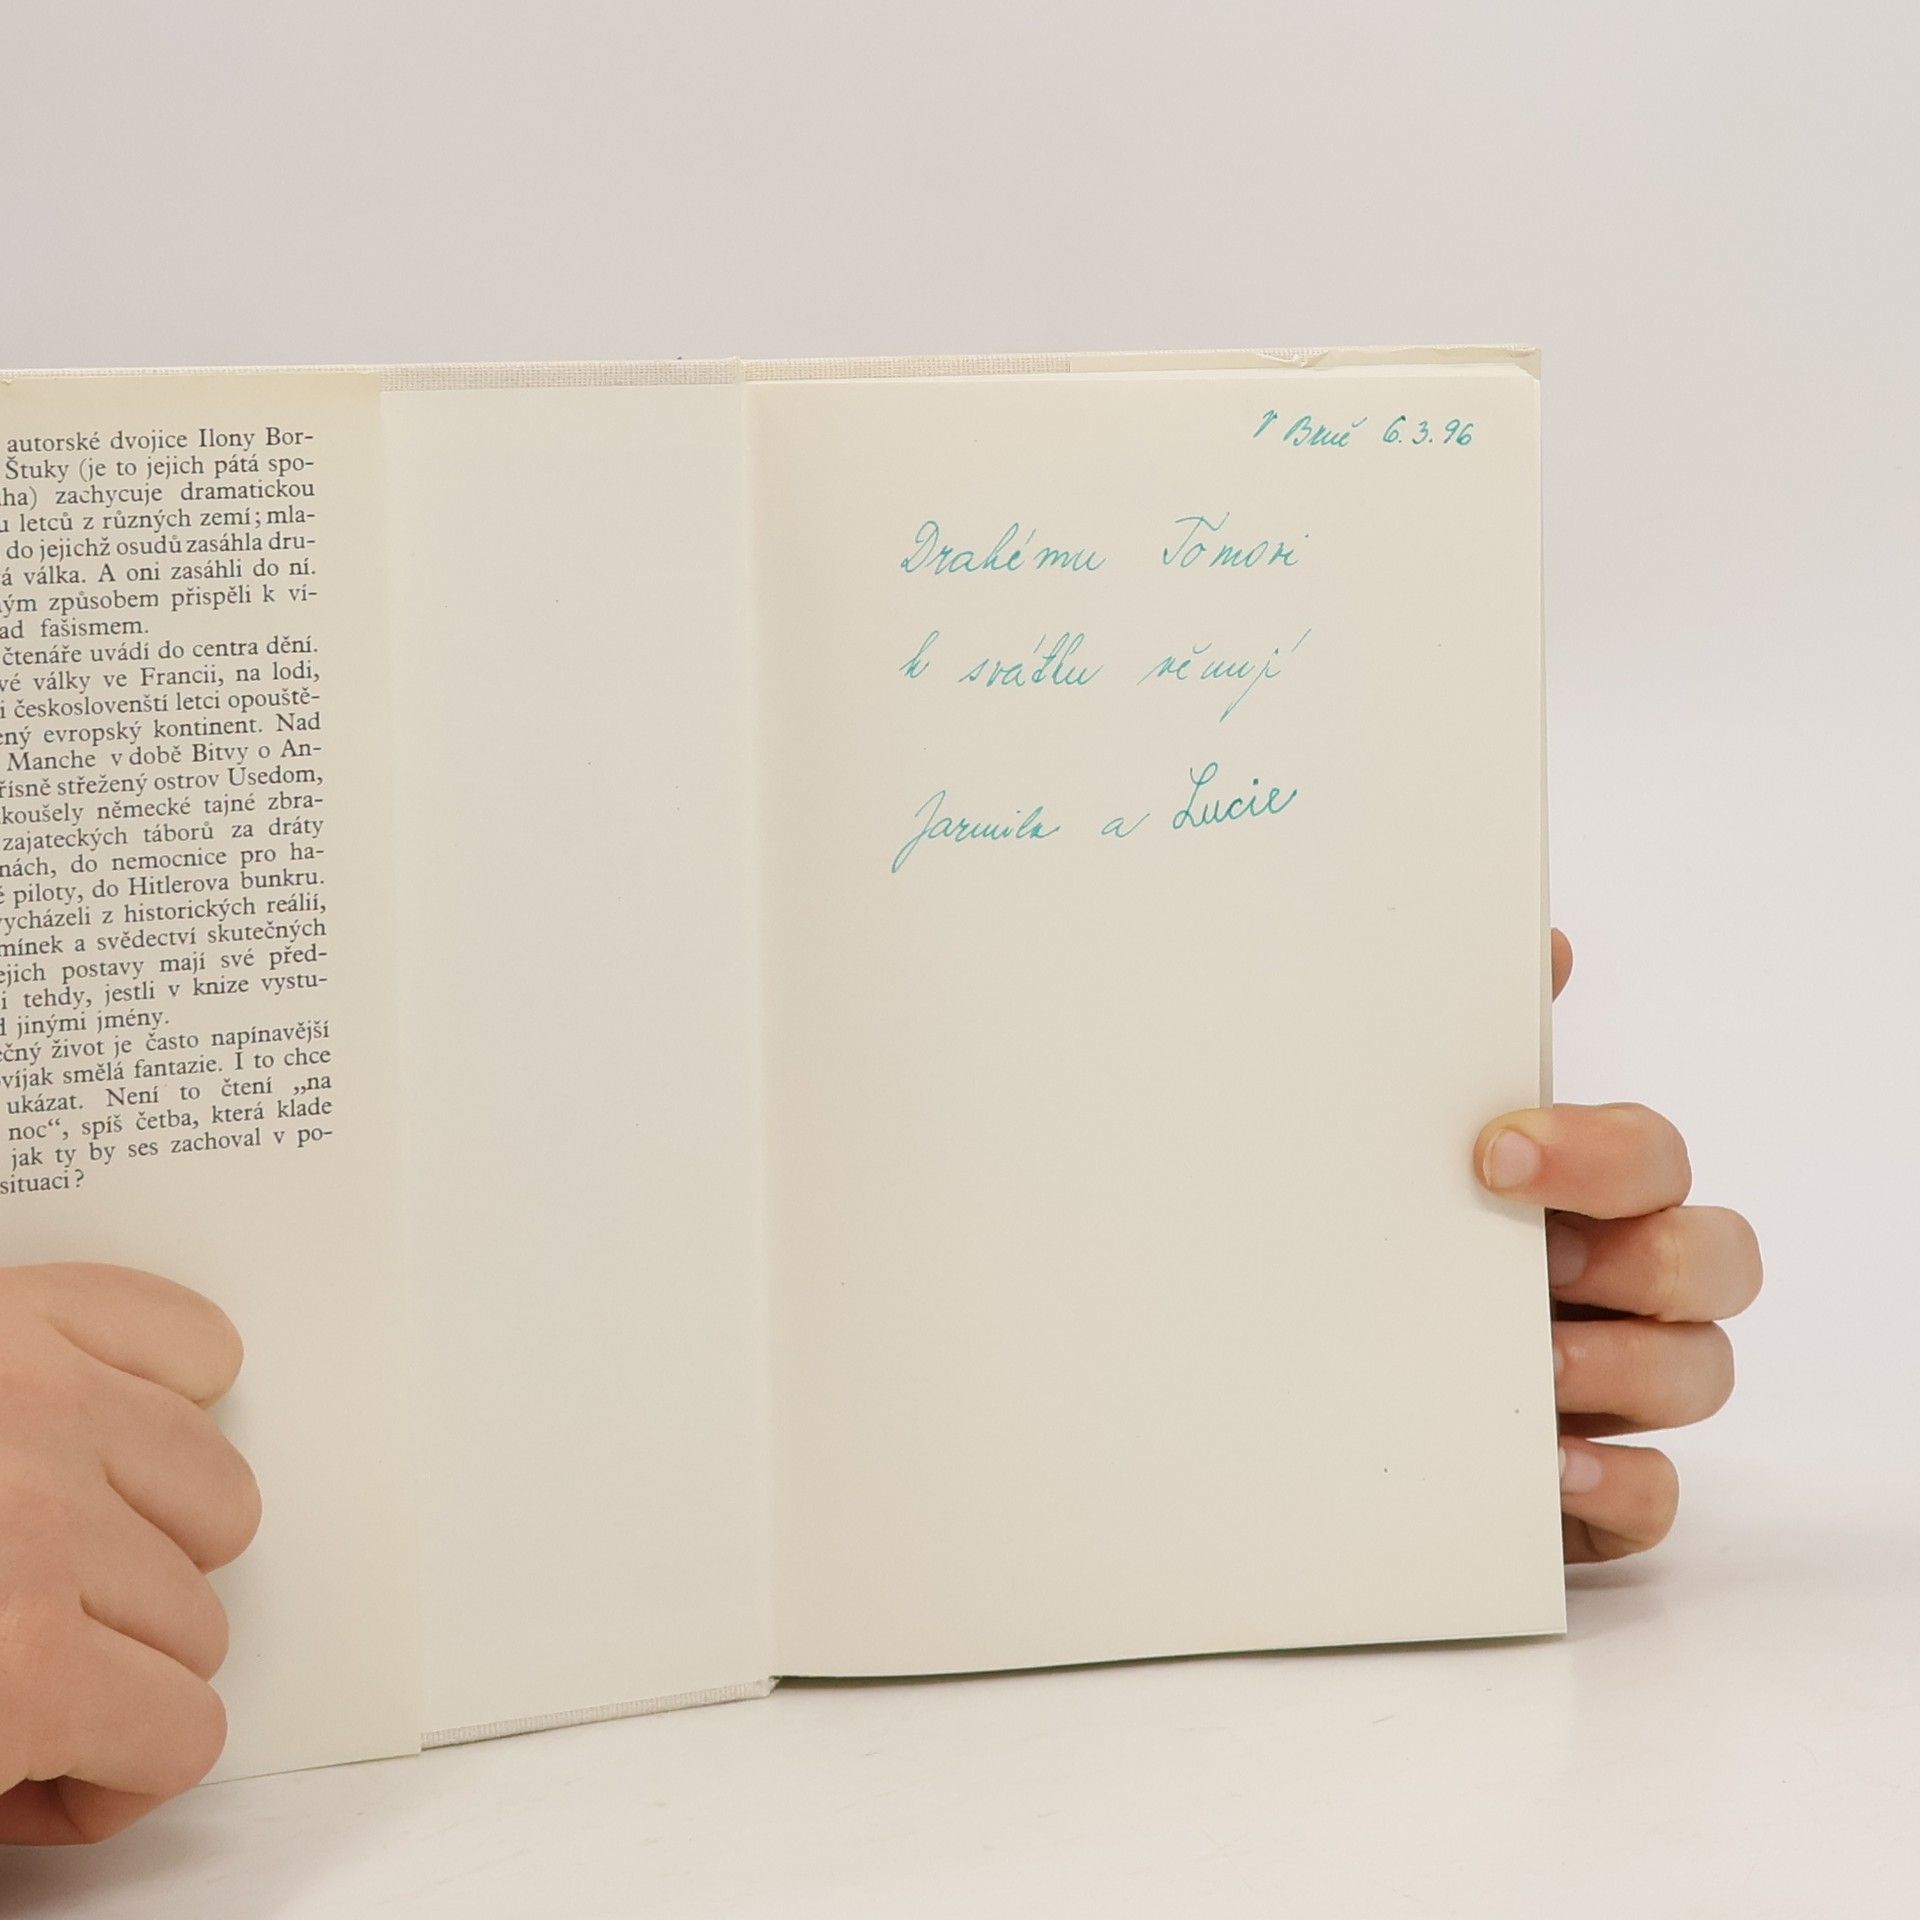 autorské dvojice Ilony Bor-
Štuky (je to jejich pátá spo-
ha) zachycuje dramatickou
u letců z různých zemí; mla-
do jejichž osudů zasáhla dru-
á válka. A oni zasáhli do ní.
ným způsobem přispěli k ví-
ad fašismem.
čtenáře uvádí do centra dění.
vé války ve Francii, na lodi,
i českoslovenští letci opouště-
ený evropský kontinent. Nad
Manche v době Bitvy o An-
řísně střežený ostrov Usedom,
koušely německé tajné zbra-
zajateckých táborů za dráty
nách, do nemocnice pro ha-
é piloty, do Hitlerova bunkru.
vycházeli z historických reálií,
mínek a svědectví skutečných
ejich postavy mají své před-
i tehdy, jestli v knize vystu-
d jinými jmény.
ečný život je často napínavější
víjak smělá fantazie. I to chce
ukázat. Není to čtení „na
noc“, spíš četba, která klade
jak ty by ses zachoval v po-
situaci?
V Brně 6.3.96
Drahému Tomovi
k svátku věnují
Jarmila a Lucie